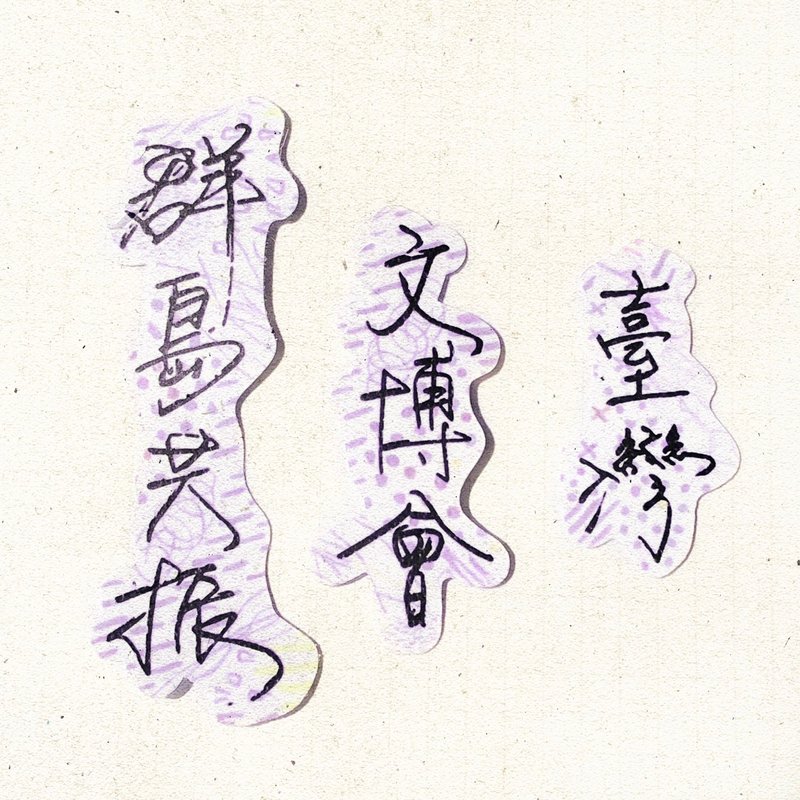 臺灣
文博會
群島共振